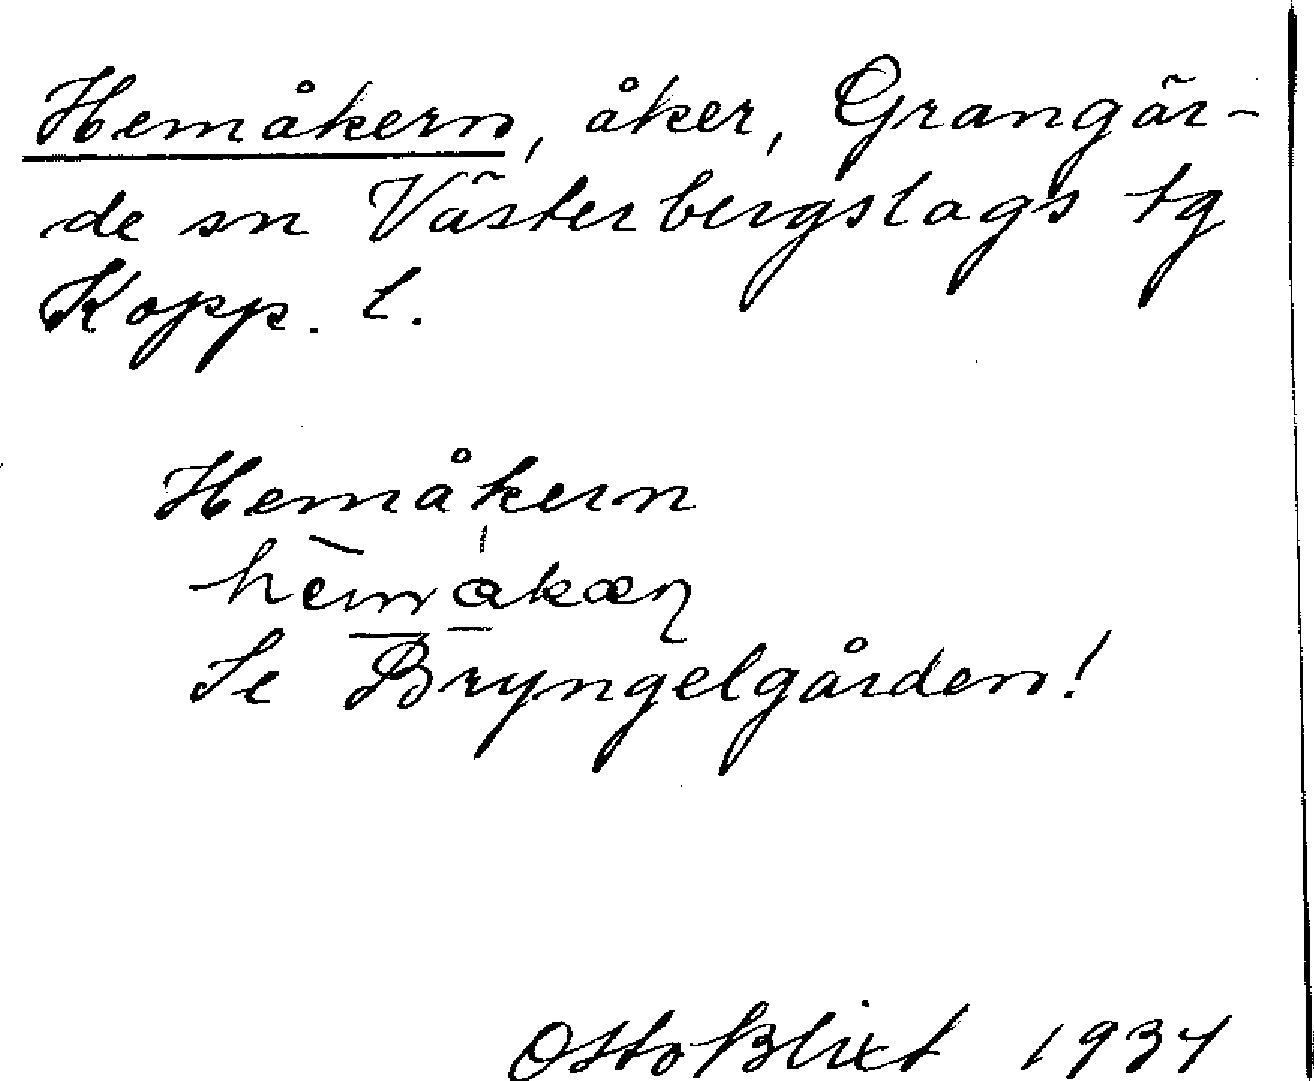 Hemåkern, åker, Grangär-
de sn Västerbergslags tg
Kopp. l.
Hemåkern
hemåkæɳ
Se Bryngelgården!
Otto Blixt 1934